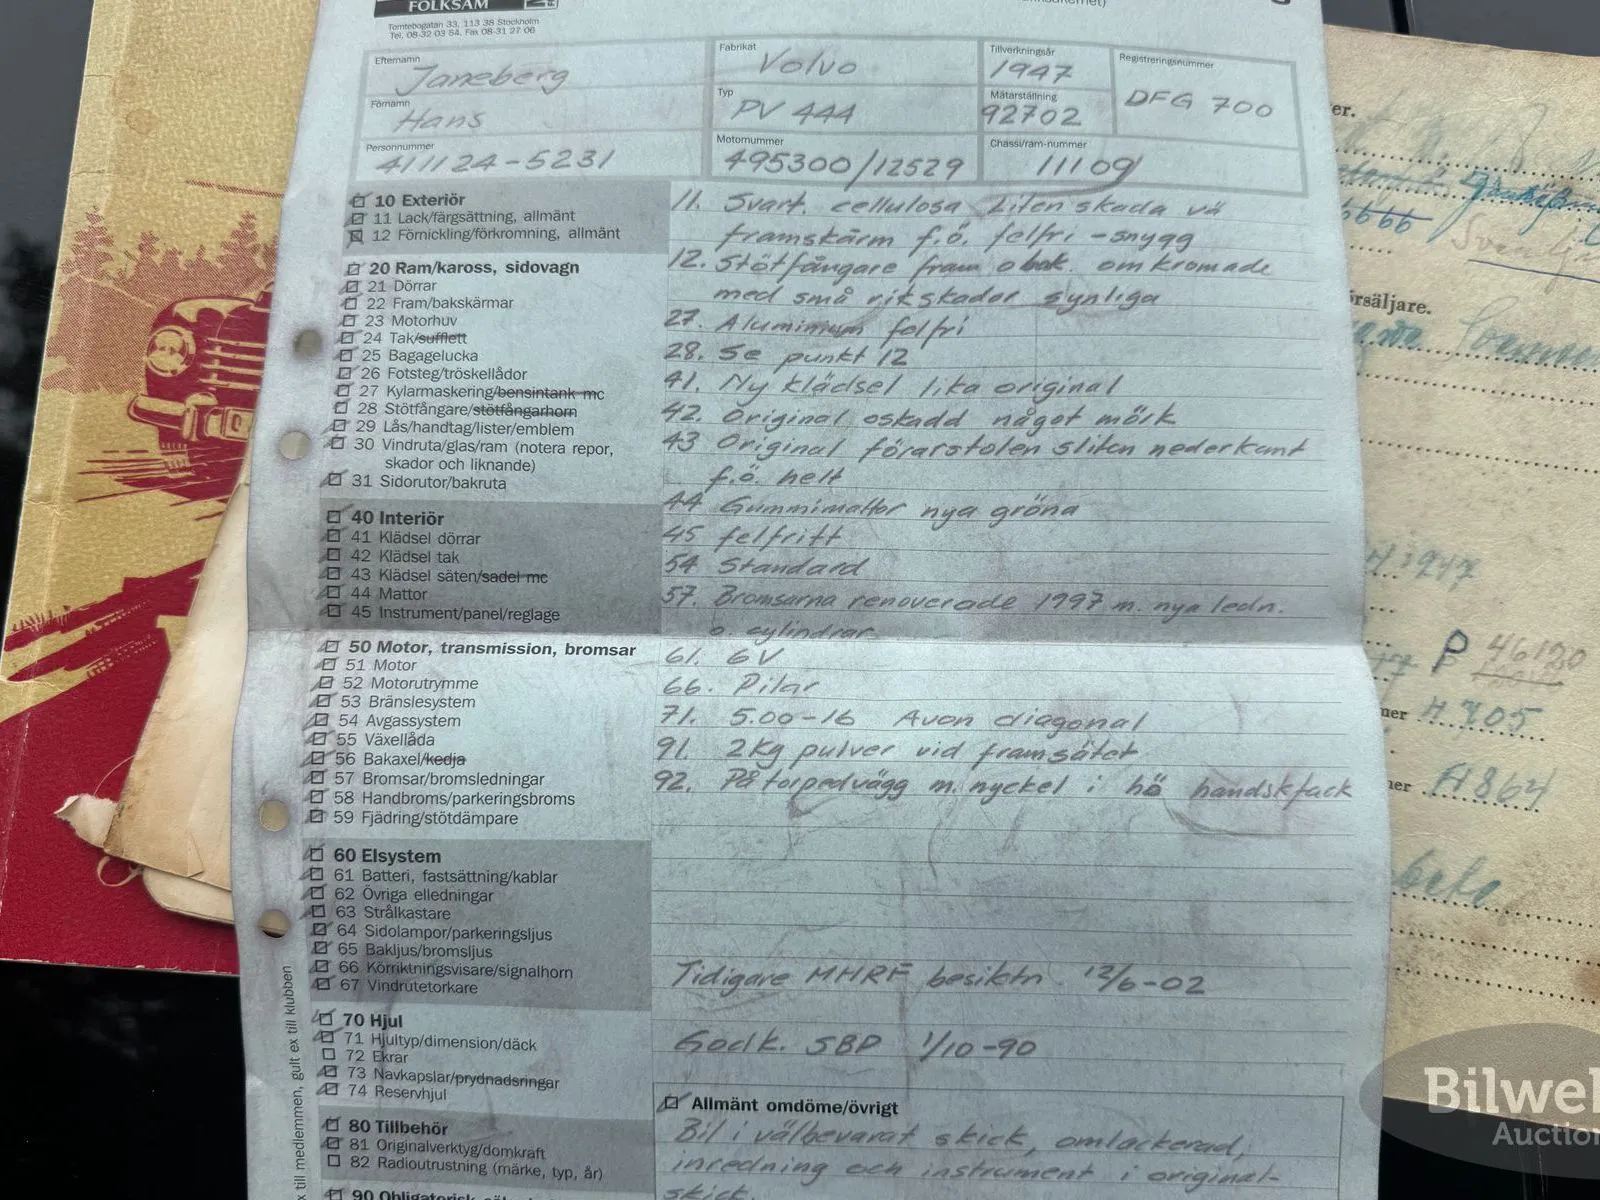 FOLKSAM
Tomtebogatan 33, 113 38 Stockholm
Tel. 08-32 03 54, Fax 08-31 27 06
Efternamn
Janeberg
Förnamn
Hans
Personnummer
411124-5231
Fabrikat
Volvo
Typ
PV 444
Motornummer
495300/12529
Tillverkningsår
1947
Mätarställning
92702
Chassi/ram-nummer
11109
Registreringsnummer
DFG 700
10 Exteriör
11 Lack/färgsättning, allmänt
12 Förnickling/förkromning, allmänt
20 Ram/kaross, sidovagn
21 Dörrar
22 Fram/bakskärmar
23 Motorhuv
24 Tak/sufflett
25 Bagagelucka
26 Fotsteg/tröskellådor
27 Kylarmaskering/bensintank mc
28 Stötfångare/stötfångarhorn
29 Lås/handtag/lister/emblem
30 Vindruta/glas/ram (notera repor,
skador och liknande)
31 Sidorutor/bakruta
40 Interiör
41 Klädsel dörrar
42 Klädsel tak
43 Klädsel säten/sadel mc
44 Mattor
45 Instrument/panel/reglage
50 Motor, transmission, bromsar
51 Motor
52 Motorutrymme
53 Bränslesystem
54 Avgassystem
55 Växellåda
56 Bakaxel/kedja
57 Bromsar/bromsledningar
58 Handbroms/parkeringsbroms
59 Fjädring/stötdämpare
60 Elsystem
61 Batteri, fastsättning/kablar
62 Övriga elledningar
63 Strålkastare
64 Sidolampor/parkeringsljus
65 Bakljus/bromsljus
66 Körriktningsvisare/signalhorn
67 Vindrutetorkare
70 Hjul
71 Hjultyp/dimension/däck
72 Ekrar
73 Navkapslar/prydnadsringar
74 Reservhjul
80 Tillbehör
81 Originalverktyg/domkraft
82 Radioutrustning (märke, typ, år)
90 Obligatorisk
11. Svart. cellulosa Liten skada vä
framskärm f.ö. felfri - snygg
12. Stötfångare fram o bak. omkromade
med små rikskador synliga
27. Aluminium felfri
28. Se punkt 12
41. Ny klädsel lika original
42. Original oskadd något mörk
43 Original förarstolen sliten nederkant
f.ö. helt
44 Gummimattor nya gröna
45 felfritt
54 Standard
57. Bromsarna renoverade 1997 m. nya ledn.
o. cylindrar
61. 6V
66. Pilar
71. 5.00-16 Avon diagonal
91. 2Kg pulver vid framsätet
92. På torpedvägg m. nyckel i hö handskfack
Tidigare MHRF besiktn. 12/6-02
Godk. SBP 1/10-90
Allmänt omdöme/övrigt
Bil i välbevarat skick, omlackerad,
inredning och instrument i original-
skick.
x till medlemmen, gult ex till klubben
er.
försäljare.
1947
P 46120
H 705
H864
Bilwel
Auction